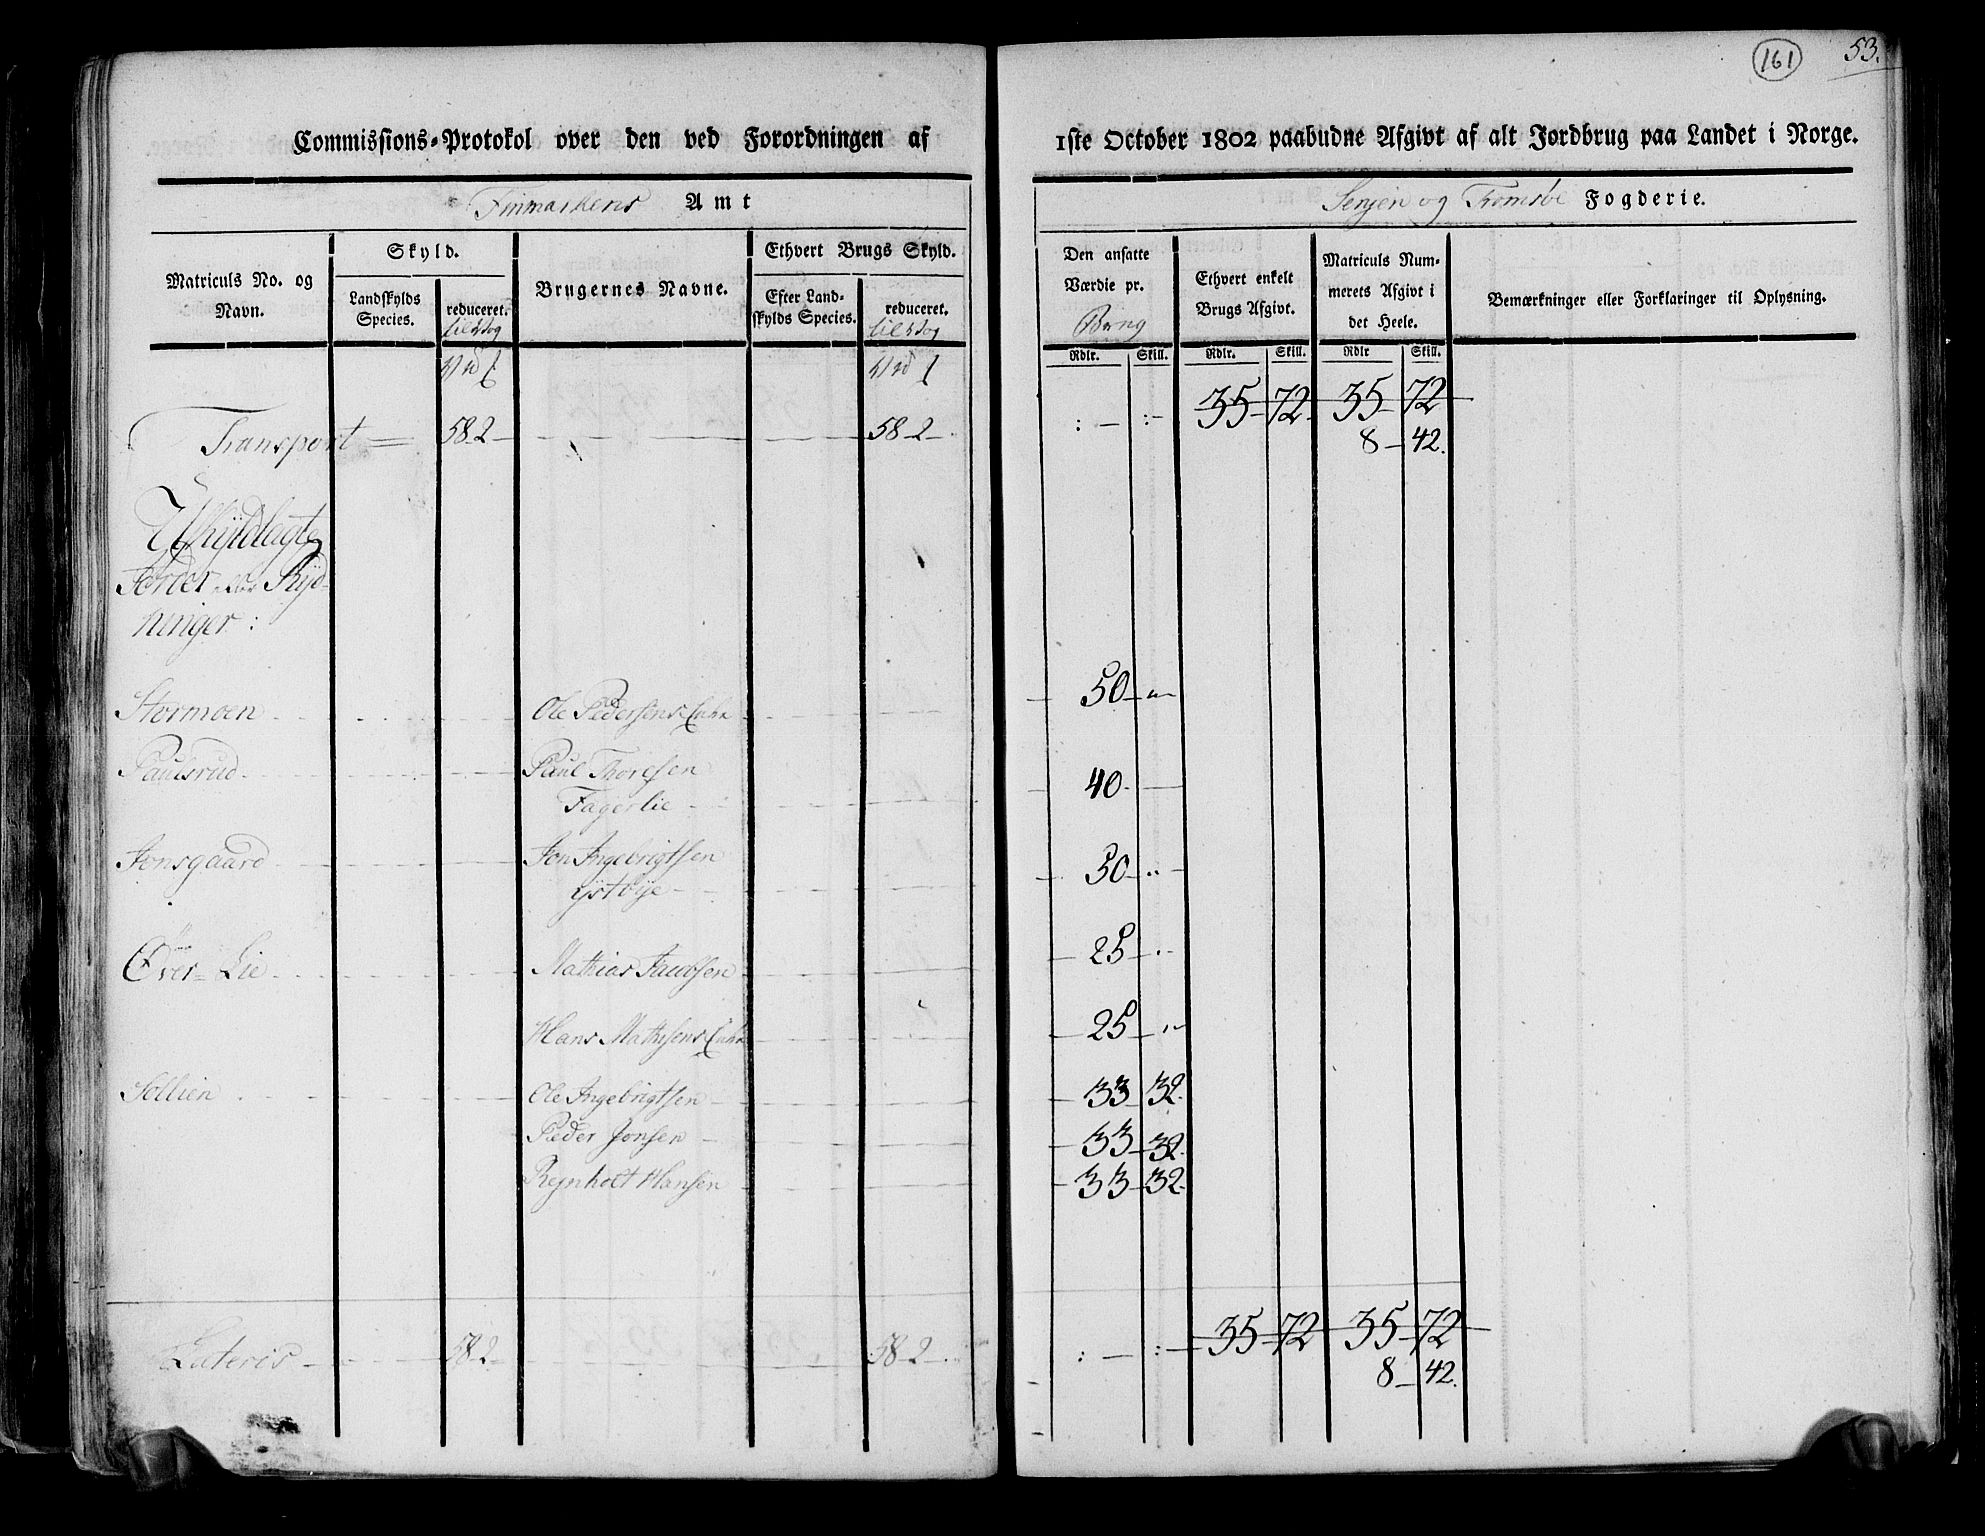 161
53.
Commissions-Protokol over den ved Forordningen af
1ste October 1802 paabudne Afgivt af alt Jordbrug paa Landet i Norge.
Finmarkens Amt
Senjen og Tromsøe Fogderie.
Matriculs No. og Navn.
Skyld.
Landskylds Species.
reduceret.
Brugernes Navne.
Ethvert Brugs Skyld.
Efter Landskylds Species.
reduceret.
Den ansatte Værdie pr.
Brug
Rdlr. Skill.
Ethvert enkelt Brugs Afgivt.
Rdlr. Skill.
Matriculs Nummerets Afgivt i det Heele.
Rdlr Skill.
Bemærkninger eller Forklaringer til Oplysning.
Transport 58 2 58 2 : — : — 35 72 35 72
8 42.
Uskyldlagte
Jorder eller Ryd-
ninger:
Stormoen Ole Pedersens Enke 50
Paulsrud Paul Thoresen
Fagerlie 40
Jonsgaard Jon Ingebrigtsen
ystbye 50
Over-Lie Mathias Jacobsen 25
Hans Mathisens Enke 25
Sollien Ole Ingebrigtsen 33 32
Peder Jonsen 33 32
Reynholt Hansen 33 32
Lateris 58 2 58 2 : — : — 35 72 35 72
8 42.